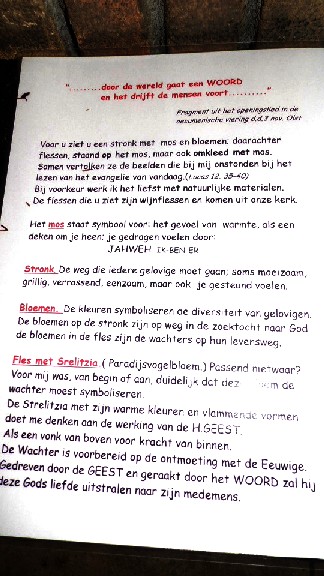 ".........door de wereld gaat een WOORD
en het drijft de mensen voort.........."
Fragment uit het openingslied in de
oecumenische viering d.d.7 nov. Olst
Voor u ziet u een stronk met mos en bloemen; daarachter
flessen, staand op het mos, maar ook omkleed met mos.
Samen vertolken ze de beelden die bij mij ontstonden bij het
lezen van het evangelie van vandaag.(Lucas 12, 35-40)
Bij voorkeur werk ik het liefst met natuurlijke materialen.
De flessen die u ziet zijn wijnflessen en komen uit onze kerk.
Het mos staat symbool voor: het gevoel van warmte, als een
deken om je heen; je gedragen voelen door:
JAHWEH IK-BEN ER
Stronk. De weg die iedere gelovige moet gaan; soms moeizaam,
grillig, verrassend, eenzaam, maar ook je gesteund voelen.
Bloemen. De kleuren symboliseren de diversiteit van gelovigen.
De bloemen op de stronk zijn op weg in de zoektocht naar God
de bloemen in de fles zijn de wachters op hun levensweg.
Fles met Srelitzia ( Paradijsvogelbloem.) Passend nietwaar?
Voor mij was, van begin af aan, duidelijk dat dez oem de
wachter moest symboliseren.
De Strelitzia met zijn warme kleuren en vlammende vormen
doet me denken aan de werking van de H.GEEST.
Als een vonk van boven voor kracht van binnen.
De Wachter is voorbereid op de ontmoeting met de Eeuwige.
Gedreven door de GEEST en geraakt door het WOORD zal hij
deze Gods liefde uitstralen naar zijn medemens.